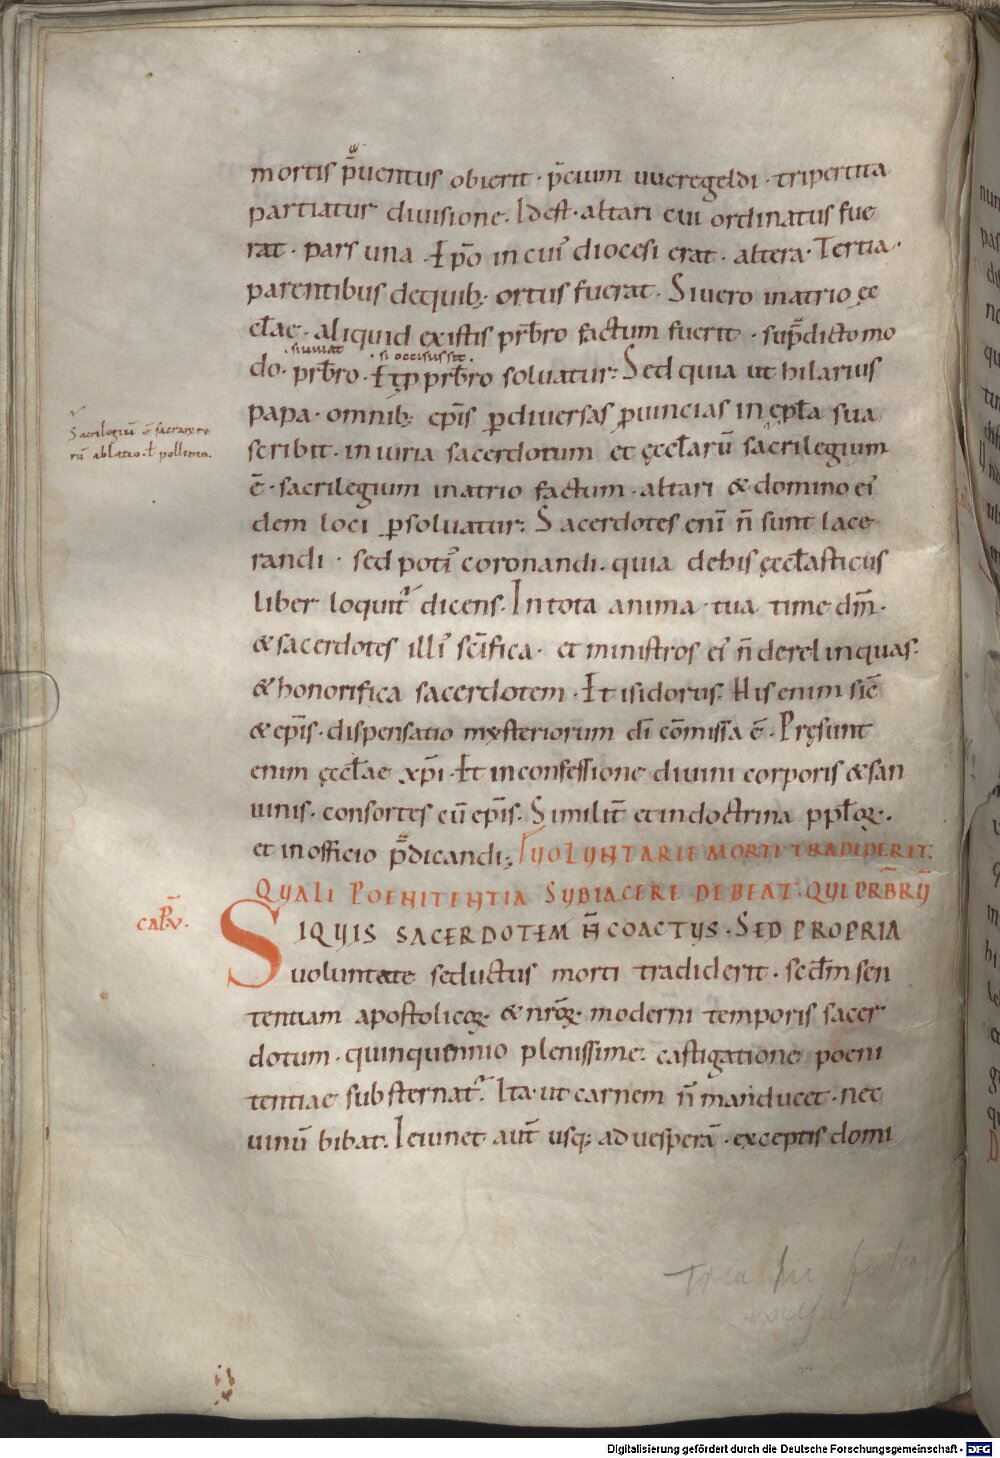 mortis p̄uentus obierit · p̄cium uueregeldi · tripertita
partiatur diuisione. Idest · altari cui ordinatus fue
rat · pars una · Ep̄o in cui' diocesi erat · altera · Tertia ·
parentibus dequib; · ortus fuerat · Si uero inatrio ęc
cl̄ae · aliquid existis prb̄ro factum fuerit · sup̄dicto mo
· siuiuat · si occisus sit ·
do · prb̄ro · prb̄ro soluatur: Sed quia ut hilarius
papa · omnib; ep̄is ꝑdiuersas ꝓuincias in ep̄la sua
scribit · iniuria sacerdotum et ęccl̄arū sacrilegium
ē · sacrilegium inatrio factum · altari & domino ei'
dem loci ꝑsoluatur: Sacerdotes eni̅ n̄ sunt lace
randi · sed poti' coronandi. quia dehis ęccl̄asticus
liber loquit̛ dicens. In tota anima tua time dm̄ ·
& sacerdotes illi' sc̄ifica · et ministros ei' n̄ derelinquas ·
& honorifica sacerdotem · Et isidorus: His enim sic̄
& ep̄is · dispensatio mysteriorum di̅ cōmissa ē · Pręsunt
enim ęccl̄ae xp̄i · Et inconfessione diuini corporis & san
uinis · consortes cū ep̄is. Similit̄ et indoctrina ppl̄oꝝ ·
et in officio p̄dicandi; VOLUNTARIE MORTI TRADIDERIT.
QUALI POENITENTIA SUBIACERE DEBEAT · QUI PRB̄RŪ
CAP̄ V.
SIQUIS SACERDOTEM N̄ COACTUS · SED PROPRIA
uoluntate seductus morti tradiderit · secd̄m sen
tentiam apostolicoꝝ · & nr̄oꝝ moderni temporis sacer
dotum · quinquennio plenissime: castigatione poeni
tentiae substernat̛. Ita · ut carnem n̄ manducet · nec
uinū bibat. Ieiunet aut̄ usq; ad uesperā · exceptis domi
Sacrilegiū ē sacrarū re
rū ablatio · ł pollutio.
Digitalisierung gefördert durch die Deutsche Forschungsgemeinschaft - DFG